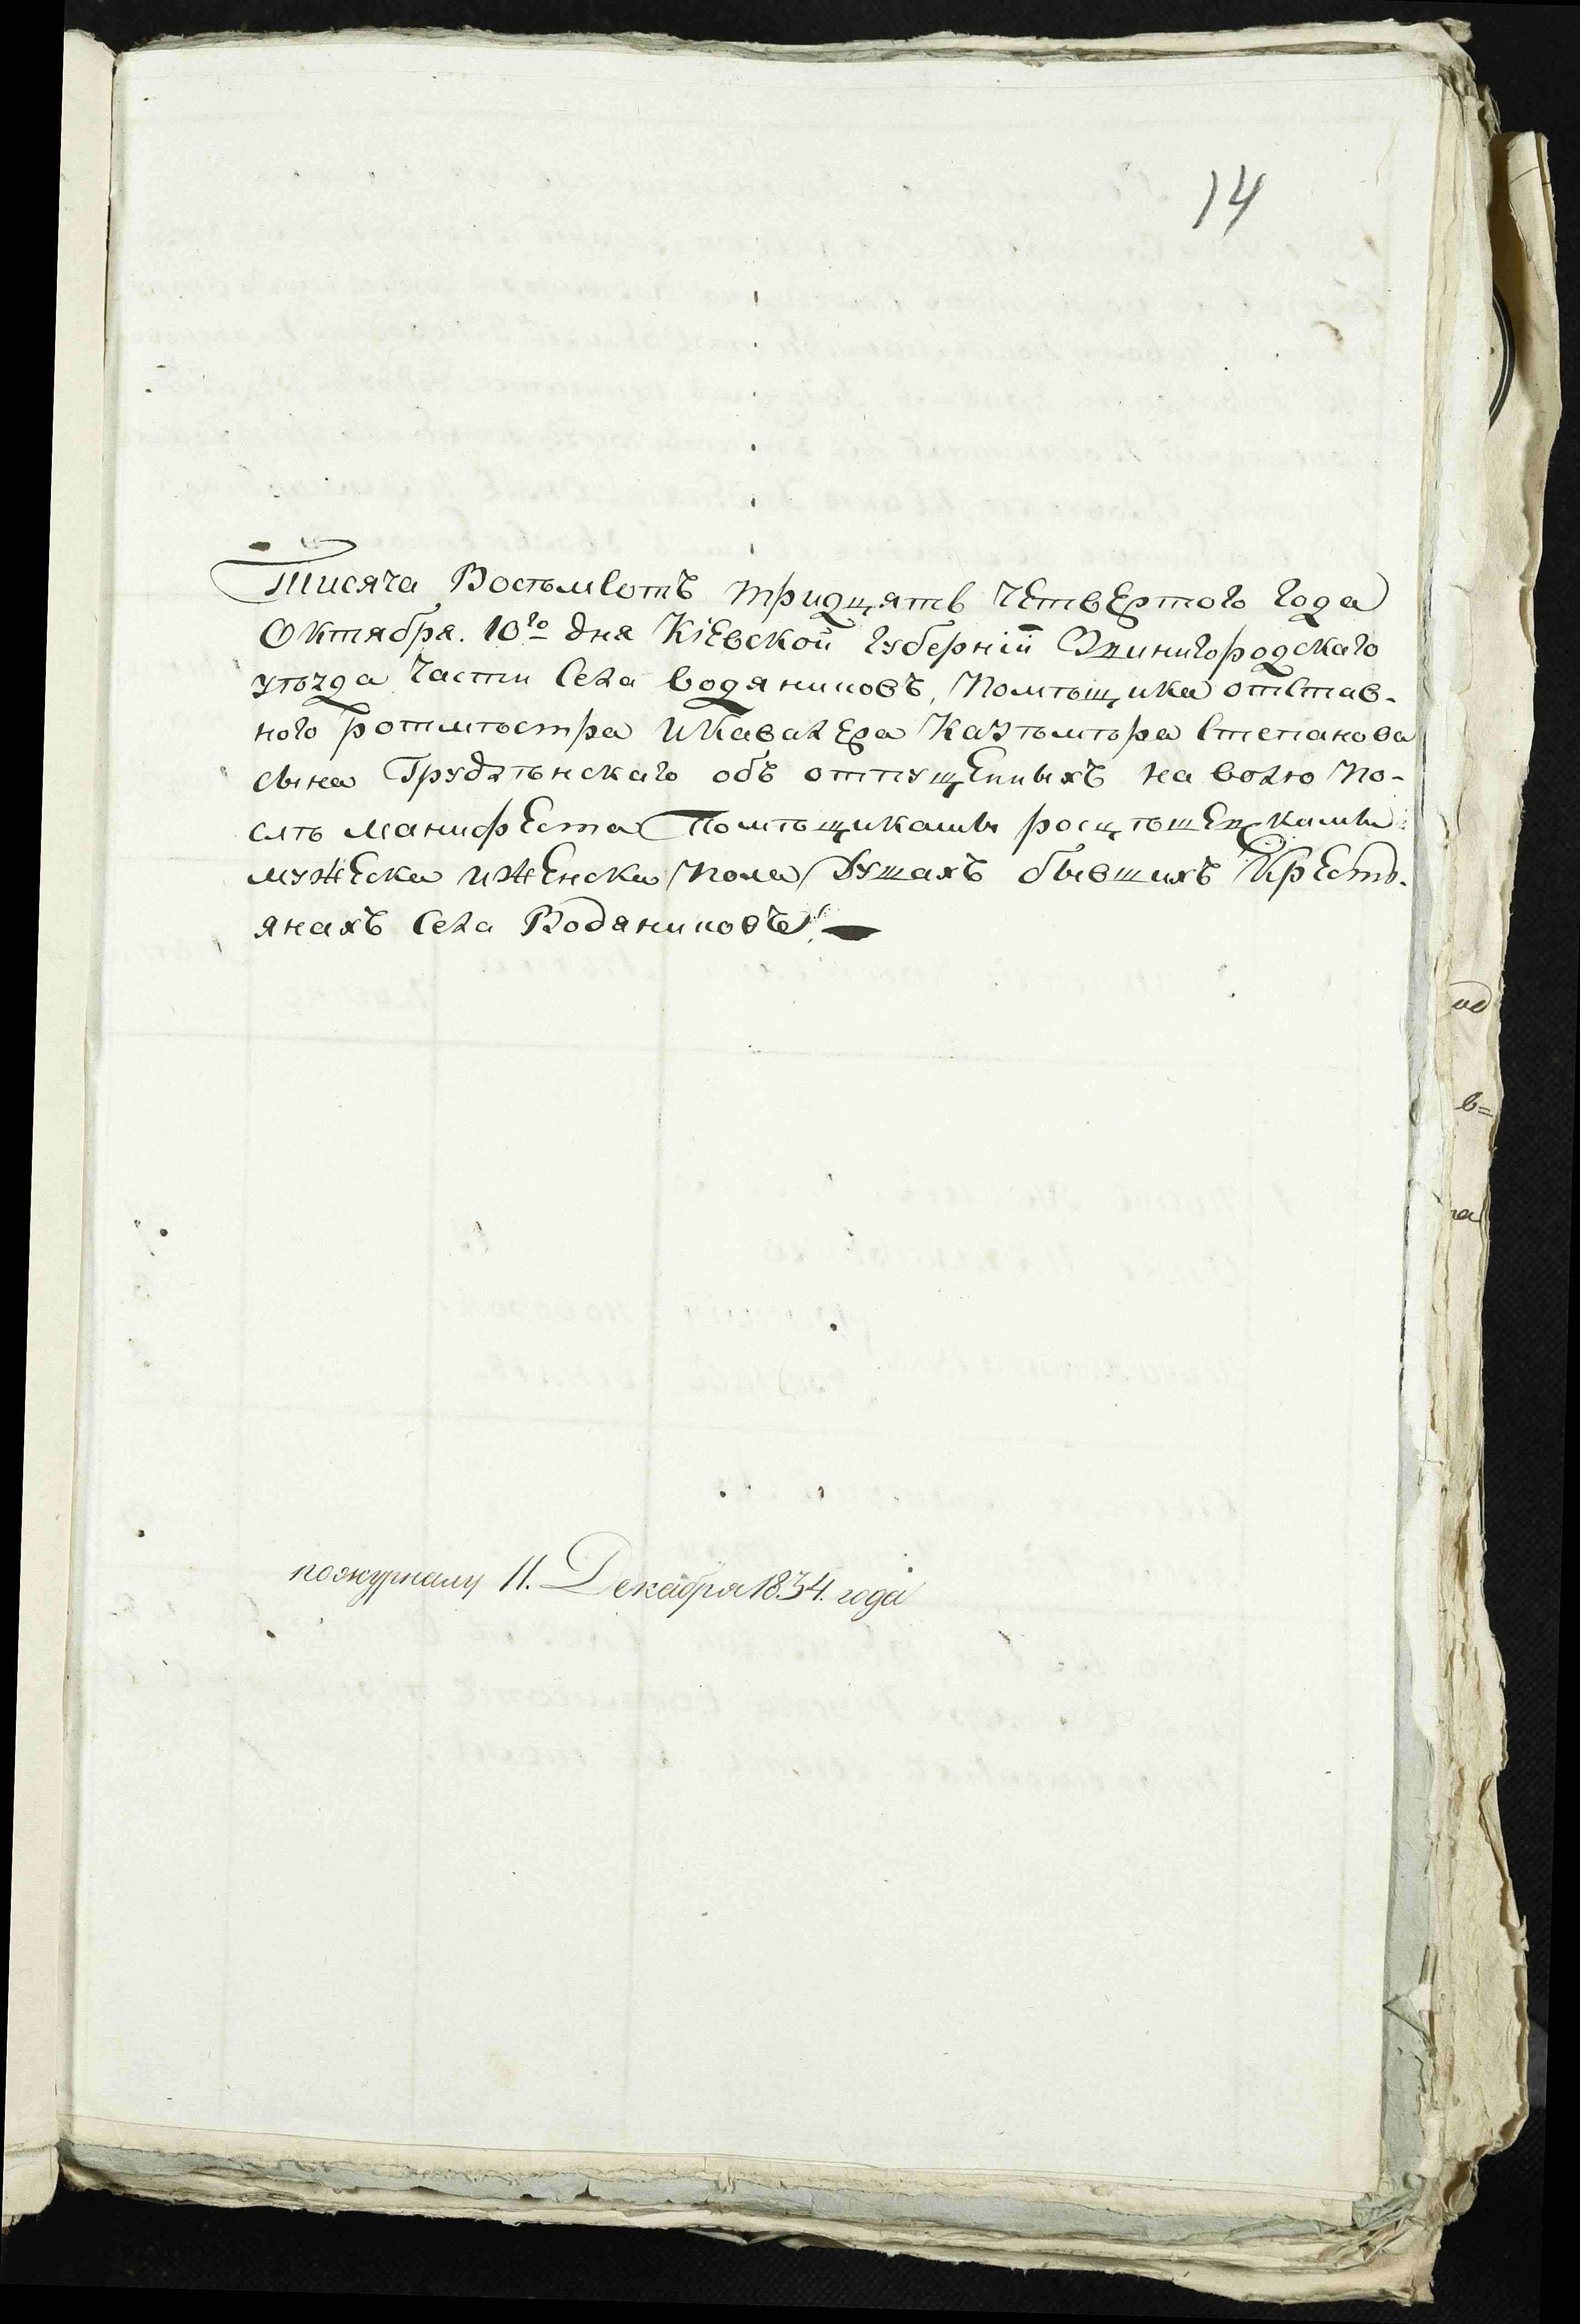 14
Тисяча Востьмсотъ тридцять четвертого года
Октября. 10го дня Кіевской губерніи Звинигородскаго
уѣзда части села водяниковъ, помѣщика отстав-
ного ротмѣстра и Кавалера Казѣмѣра степанова
сына Грудзѣнскаго объ отпущенныхъ на волю по-
слѣ манифеста помѣщиками росцѣшевскими
мужеска и женска пола Душахъ бывшихъ Кресть-
янахъ села Водяниковъ.
по журналу 11. Декабря 1834. года